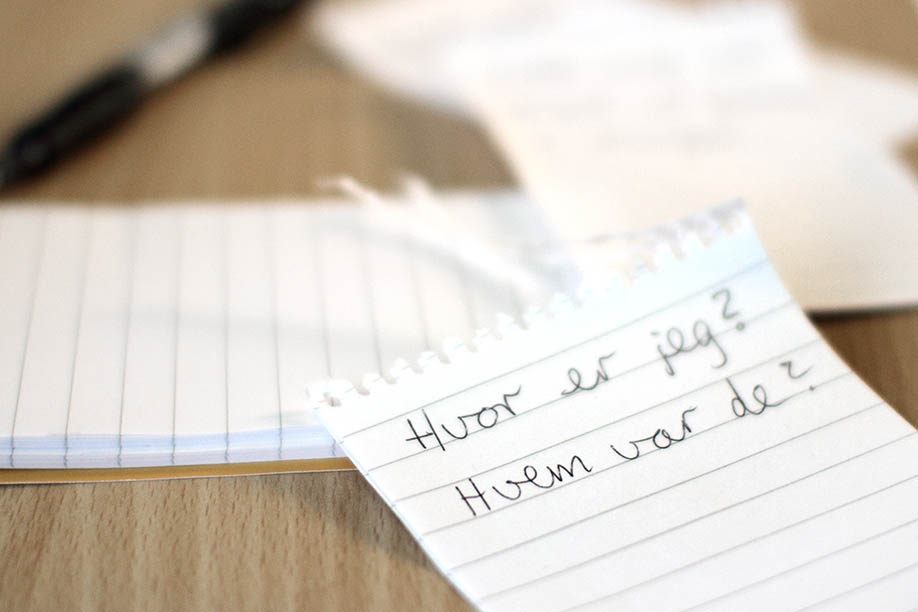 Hvor er jeg?
Hvem var de?